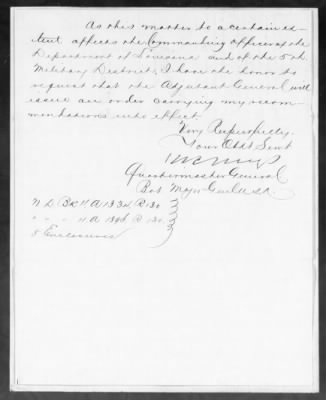 As this matter to a certain ex-
tent affects the Commanding Officer of the
Department of Louisiana and of the 5th
Military District, I have the honor to
request that the Adjutant General will
issue an order carrying my recom-
mendations into effect.
Very Respectfully,
Your Obdt Servt
Quartermaster General
Bvt Major Genl U.S.A.
5 Enclosures